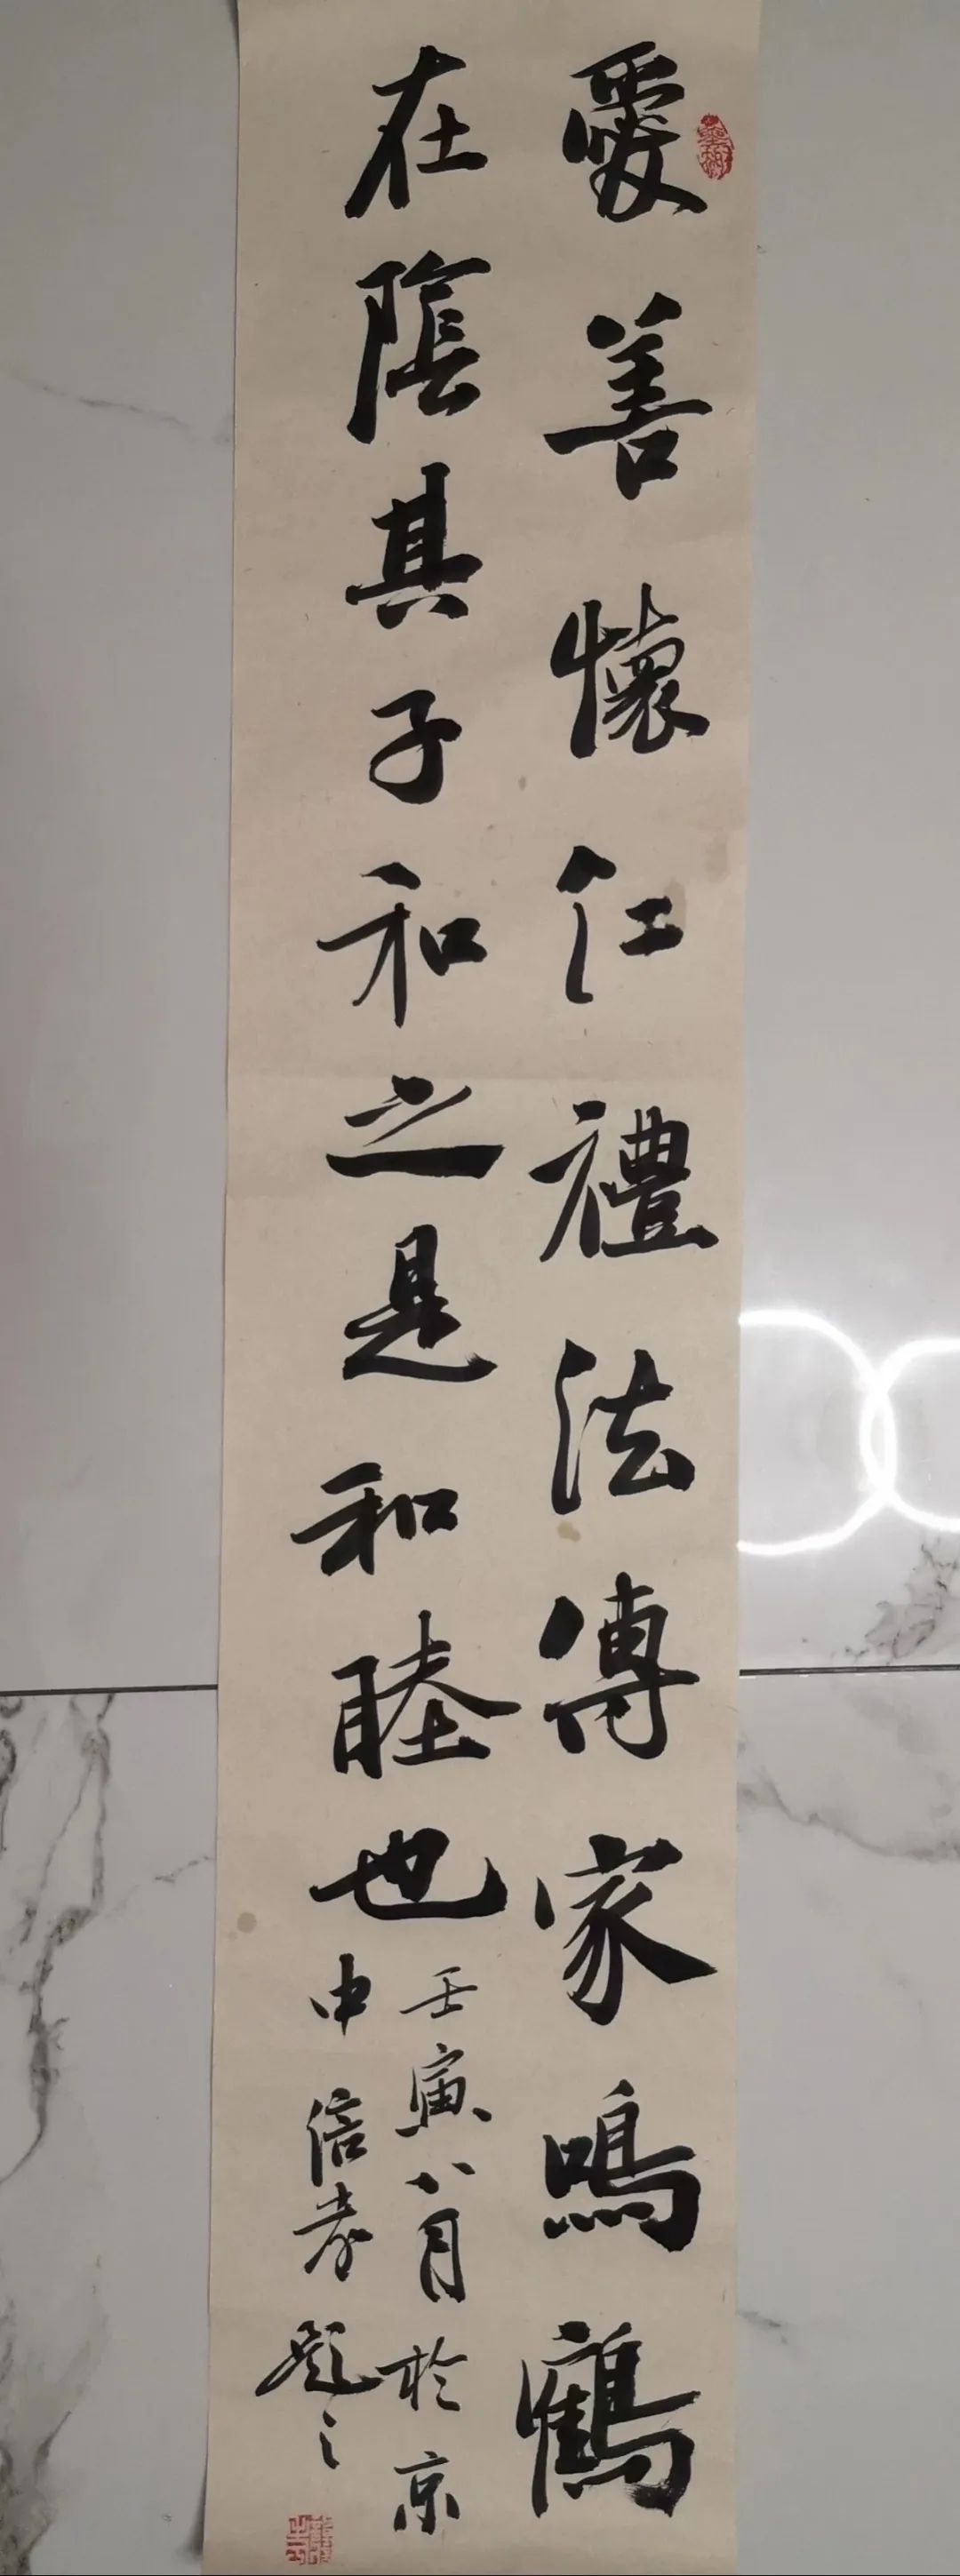 愛善懷仁禮法傳家鳴鶴
在陰其子和之是和睦也
壬寅八月於京
申倍孝題之